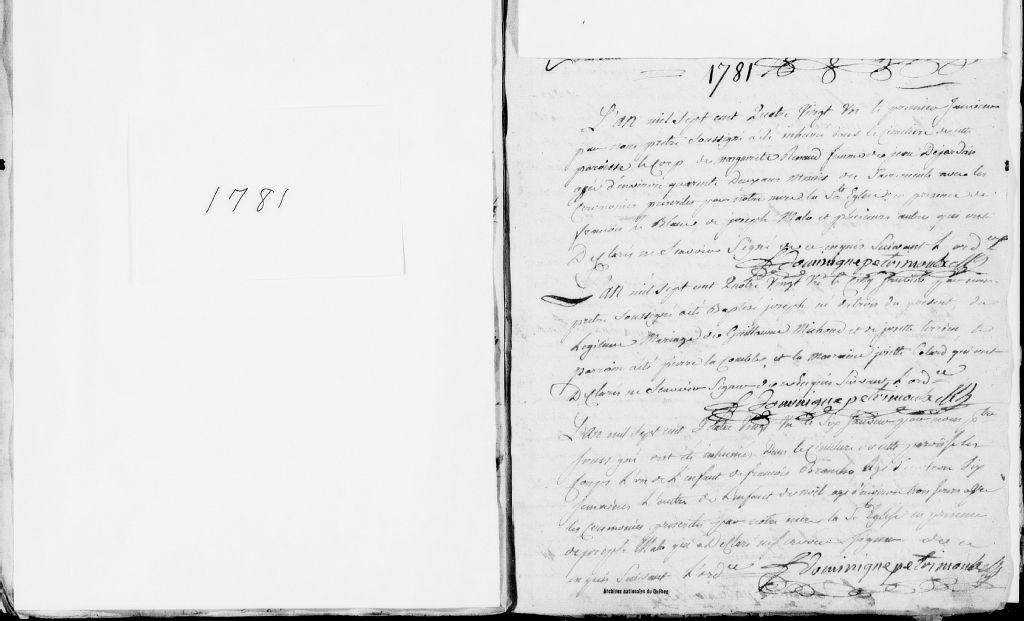 1781
1781
L'an mil sept cent Quatre Vingt Un le premier Janvier
par nous pretre Soussigné a été inhumé dans le Cimetiere de cette
paroisse le Corp de margueritte Renaud femme de jean Dejardin
agée d'environ quarante Deux ans munis des Sacrements avec les
Ceremonies prescrites par notre mere la Ste Eglise en presence de
francois le Blanc de joseph Malo et plusieurs autres qui ont
Declarés ne Scavoir Signé de ce enquis Suivant L'ordce
f Dominique petrimoulx
L'an mil sept cent Quatre Vingt Un le Cinq Janvier par nous
pretre Soussigné a été Baptisé joseph né du present, du
Legitime Mariage de Guillaume Michond et de josette terrien le
parrain a été pierre la Combles et la marraine josette Colard qui ont
Declarés ne Scavoir Signer de ce enquis Suivant L'ordce
f Dominique petrimoulx
L'an mil sept cent Quatre Vingt Un le Six Janvier par nous ptre
Soussigné ont été inhumés dans le Cimetiere de cette paroisse les
Corps L'un de L'enfant de francois agé d'environ Six
Semaines L'autre de L'enfant de noël agé d'environ trois jours avec
les Ceremonies prescrites par notre mere la Ste Eglise en presence
de joseph Malo qui a declaré ne scavoir signer de ce
enquis Suivant L'ordce
f Dominique petrimoulx
Archives nationales du Québec